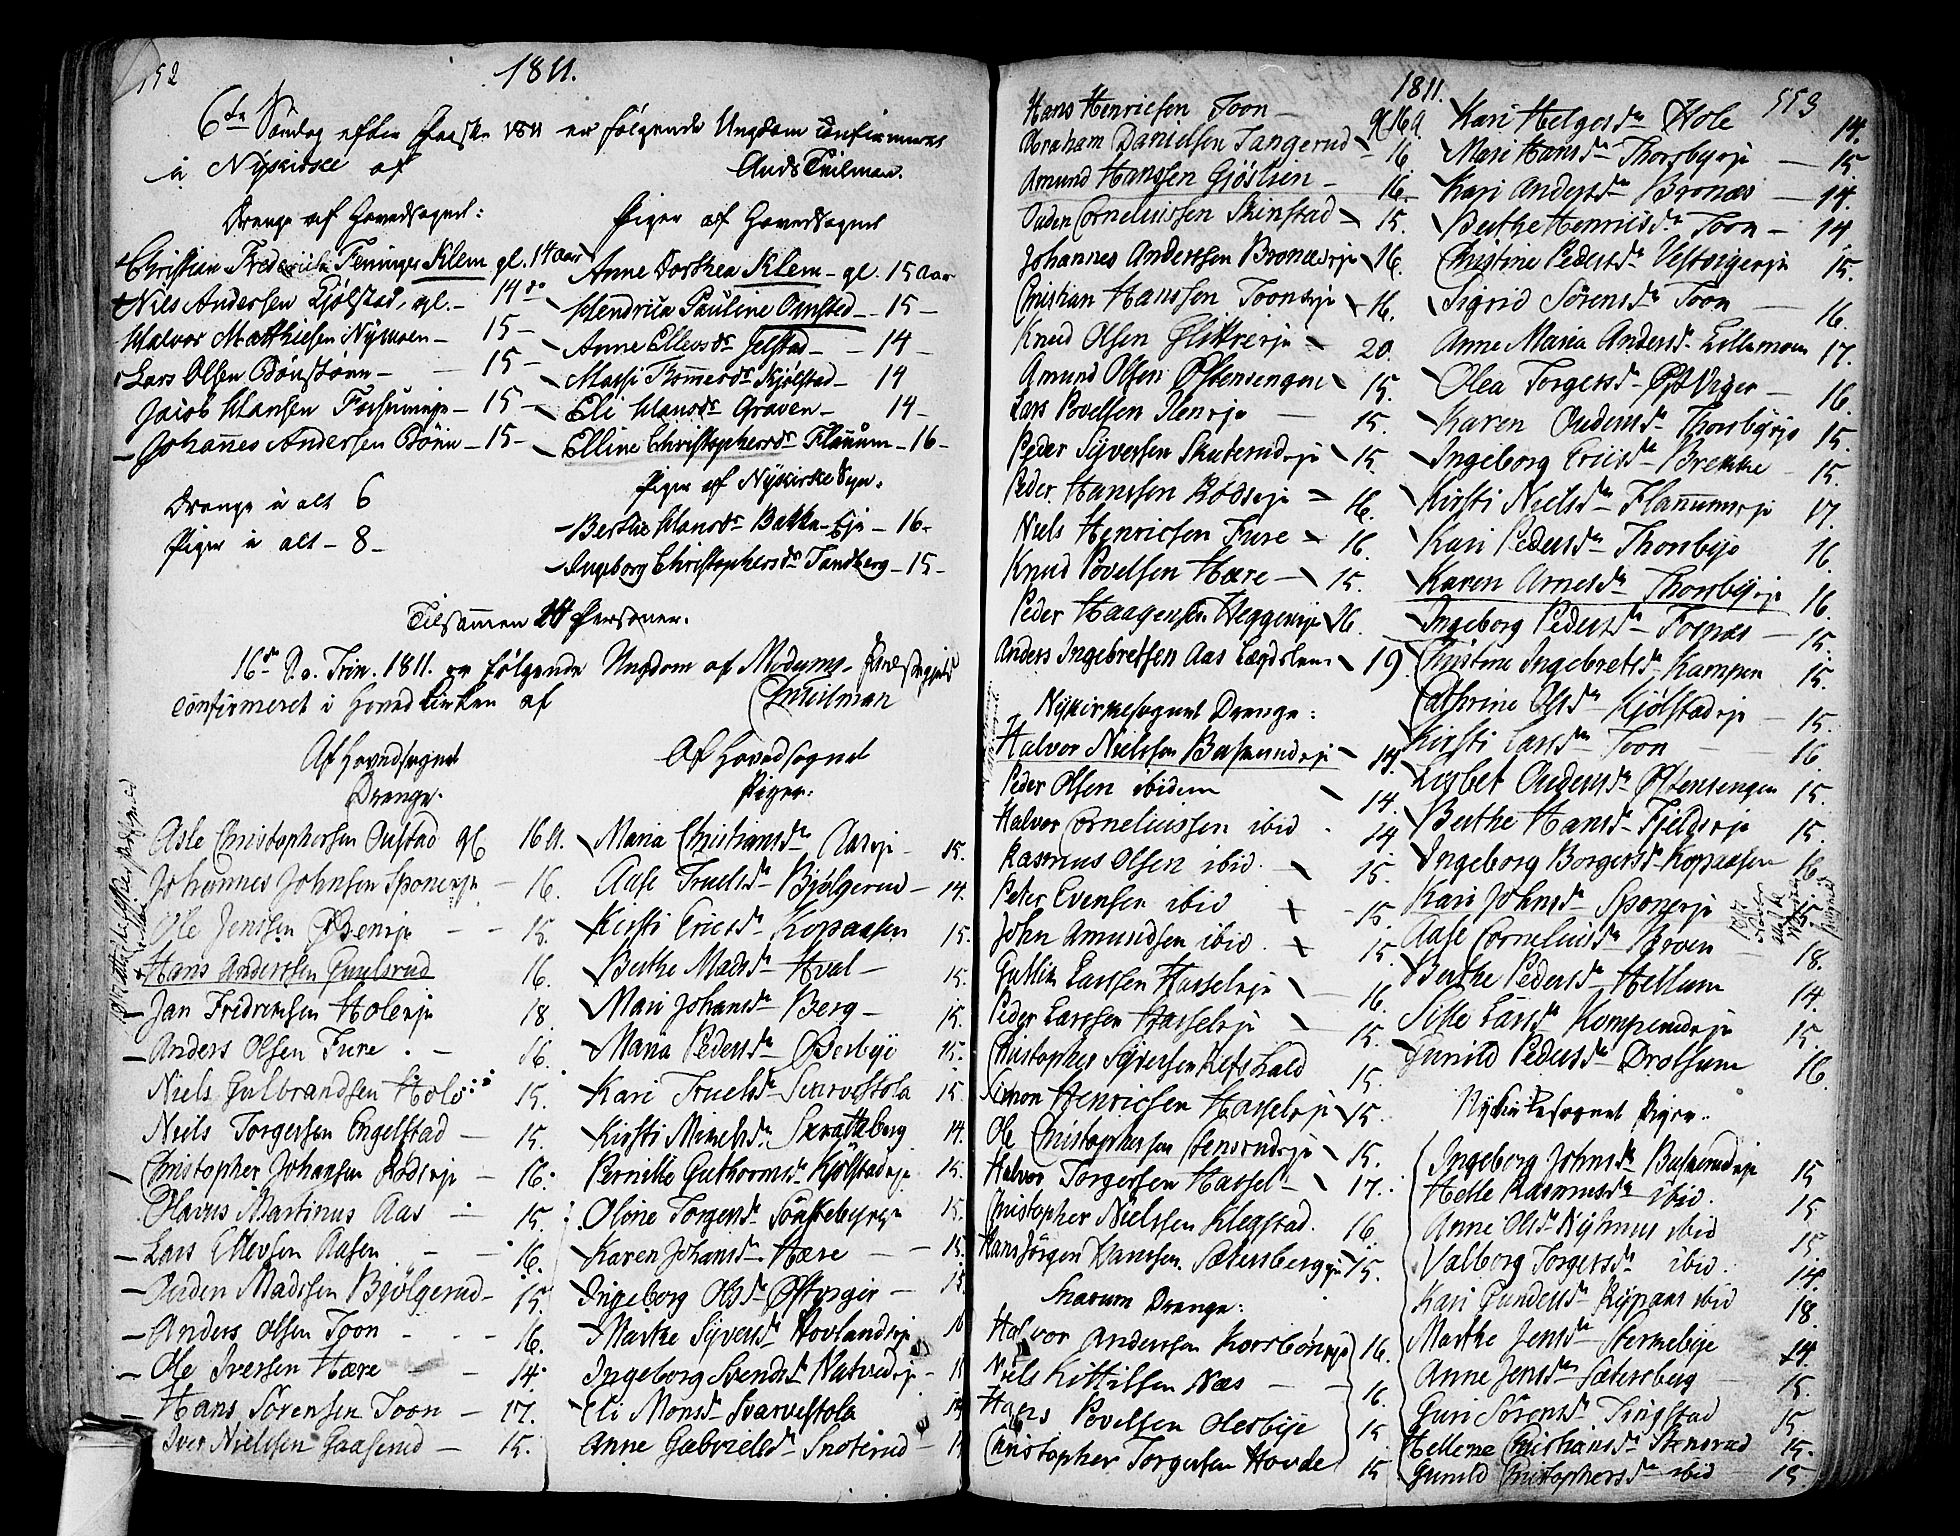 552
1811.
6te Søndag efter Paaske 1811 er følgende Ungdom confirmeret
i Nykirke af Ands Tuilman.
Drenge af Hovedsognet:
Christian Frederich Feninger Klem gl. 14 aar
Niels Andersen Kjølstad, gl. - 14 do
Halvor Matthiesen Nymoen - 15 -
Lars Olsen Bönstönn - 15 -
Jacob Hansen Forsumeje - 15 -
Johannes Andersen Bönn - 15 -
Drenge i alt 6
Piger i alt - 8 -
Piger af Hovedsognet
Anne Dorthea Klem - gl. 15 aar
Hendrica Pauline Omsted - 15 -
Anne Ellevsdr Gjelstad - 14 -
Marthe Trommersdr Kjølstad - 14
Eli Hansdr Graven - 14 -
Elline Christophersdr Flannum - 16 -
Piger af Nykirke Sogn.
Berthe Hansdr Bakke-Eje - 16 -
Ingeborg Christophersdr Tandberg - 15 -
Tilsammen 14 Personer.
16de D. Trin. 1811 er følgende Ungdom af Modums Præstegjeld
confirmeret i Hovedkirken af
Af Hovedsognet
Drenge.
Asle Christophersen Oustad gl 16 a.
Johannes Johnsen Sponeeje - 16.
Ole Jenssen Øbeneje - - 15.
Hans Anderssen Gunlsrud 16.
Jan Fredrechsen Holeeje 18.
Anders Olsen Fure . - 16.
Niels Gulbrandsen Hole 15.
Niels Torgersen Engelstad - 15.
Christopher Johansen Rødseje - 16.
Olavus Martinus Aas - 15.
Lars Ellevsen Aasen - - 16.
Ouden Madssen Bjølgerud - 15.
Anders Olsen Toon - - - 16.
Ole Iversen Hære - - 14.
Hans Sörensen Toon - 17.
Iver Nielssen Gaaserud - 15.
Af Hovedsognet
Piger:
Maria Christiansdr Aaseje - 15.
Aase Truelsdr Bjølgerud - 14.
Kirsti Ericsdr Kopaasen 15.
Berthe Madsdr Hval - 15.
Mari Johansdr Berg - 15.
Maria Pedersdr Berbye 15.
Kari Truelsdr Svarvestola 15.
Kirsti Michelsdr Skratteberg 14.
Pernille Guthormsdr Kjölstadeje 15.
Oline Torgersdr 15.
Karen Johansdr Hære - - 15.
Ingeborg Olsdr - 15
Marthe Syversdr Hovlandeje 16
Ingeborg Svendsdr Natvedeje -
Eli Monsdr Svarvestola
Anne Gabrielsdr Snoterud -
553
1811.
Hans Henricsen Toon - gl 16 a
Abraham Danielsen Tangerud - 16
Amund Hanssen Gjöstien - 16.
Ouden Corneliussen Skinstad 15.
Johannes Anderssen Bronæseje 16.
Christian Hanssen Tooneje 16.
Knud Olsen 20.
Amund Olsen Østensengen 15.
Lars Povelsen - 15.
Peder Syversen Skuterudeje 15.
Peder Hanssen Rødseje 16.
Niels Henricsen Fure 16.
Knud Povelsen Hære - 15.
Peder Haagensen Heggeneje 16.
Anders Ingebretsen Aas Lægdslem 19.
Nykirkesognet Drenge:
Halvor Nielssen Buskerudeje 14.
Peder Olsen ibidem 14.
Halvor Corneliussen ibid 14
Rasmus Olsen ibid. 15.
Peter Evensen ibid 15.
John Amundsen ibid. 15.
Gullik Larssen Hasseleje 16.
Peder Larssen Hasseleje 15.
Christopher Syversen 15.
Simon Henricsen Hasseleje 15.
Ole Christophersen Stenerudeje 15.
Halvor Torgersen Hassel - 17.
Christopher Nielssen Klegstad. 16.
Hans Jörgen Hanssen Sætersbergeje 15.
Snarum Drenge:
Halvor Anderssen Korsböneje 16.
Niels Kittilsen Næs - - 16
Hans Povelsen Olesbye 15
Christopher Torgersen Hovde 15
Kari Helgesdr Hole 14.
Mari Hansdr Thorsbyeje - 15
Kari Andersdr Bronæs - 14.
Berthe Henricsdr Toon - 14
Christine Pedersdr 15.
Sigrid Sörensdr Toon - 16.
Anne Maria Andersdr Lillemoen 17.
Olea Torgersdr - 16.
Karen Oudensdr Thorsbyeje 15.
Ingeborg Ericsdr Brekke - 15.
Kirsti Nielsdr Flannumeje 17.
Kari Pedersdr Thorsbye 16.
Karen Arnesdr Thorsbyeje 16.
Ingeborg Pedersdr Fornæs - 15.
Christine Ingebretsdr Kampen 15.
Cathrine Olsdr Kjölstadeje - 15.
Kirsti Larsdr Toon - - 16.
Lisbet Oudensdr Østensengen 15.
Berthe Hansdr Fjeldseje 15.
Ingeborg Borgersdr Kopaasen 16
Kari Johnsdr Sponeeje - 15
Aase Corneliusdr Broen - 18.
Berthe Pedersdr Hellum 14.
Sille Larsdr Komperudeje 15.
Gunild Pedersdr Drolsum 16.
Nykirkesognet Piger:
Ingeborg Johnsdr Buskerudeje 15
Helle Rasmusdr ibid. 15
Anne Olsdr Nyhuus ibid 15.
Valborg Torgersdr ibid. 14.
Kari Gundersdr ibid 18.
Marthe Jensdr Stermebye 14.
Anne Jensdr Sætersberg - 15.
Guri Sörensdr Tingstad 15
Hellene Christiansdr Stensrud 15.
Gunild Christophersdr ibid - 15.